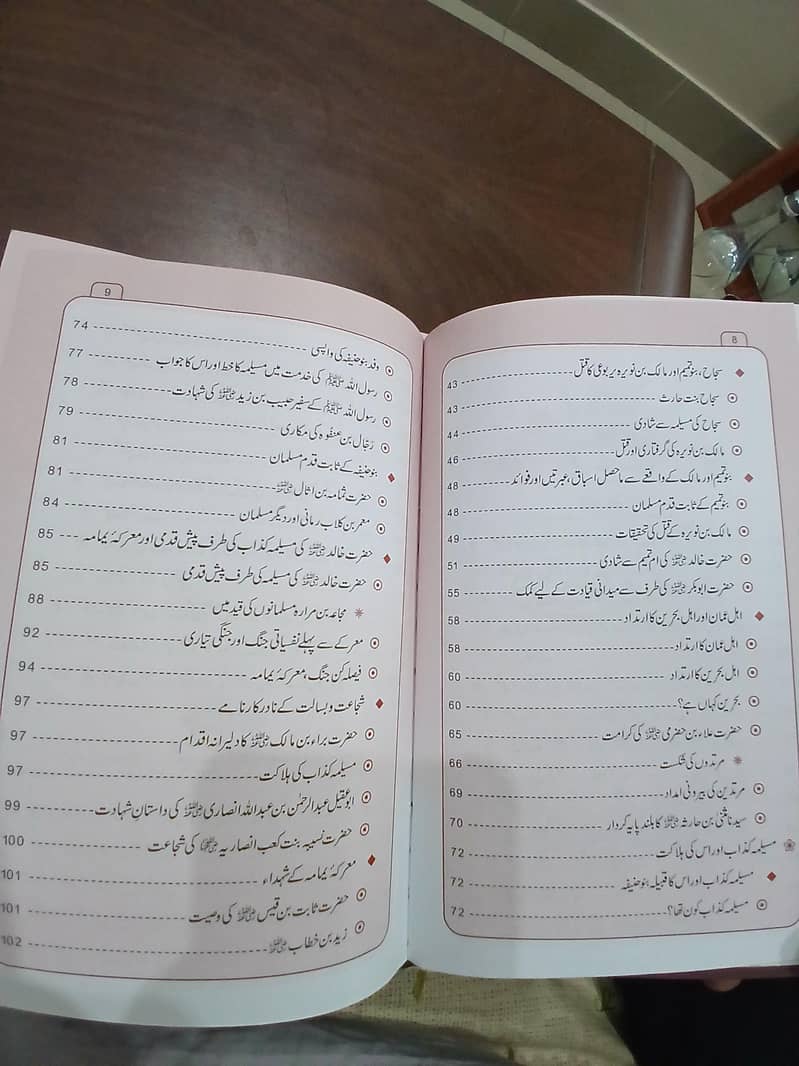 8
سجاح، بنو تمیم اور مالک بن نویرہ یربوعی کا قتل ---- 43
سجاح بنت حارث ---- 43
سجاح کی مسیلمہ سے شادی ---- 44
مالک بن نویرہ کی گرفتاری اور قتل ---- 46
بنو تمیم اور مالک کے واقعے سے ماحصل اسباق، عبرتیں اور فوائد ---- 48
بنو تمیم کے ثابت قدم مسلمان ---- 48
مالک بن نویرہ کے قتل کی تحقیقات ---- 49
حضرت خالد رضی اللہ عنہ کی ام تمیم سے شادی ---- 51
حضرت ابوبکر رضی اللہ عنہ کی طرف سے میدانی قیادت کے لیے کمک ---- 55
اہل عمان اور اہل بحرین کا ارتداد ---- 58
اہل عمان کا ارتداد ---- 58
اہل بحرین کا ارتداد ---- 60
بحرین کہاں ہے؟ ---- 60
حضرت علاء بن حضرمی رضی اللہ عنہ کی کرامت ---- 65
مرتدوں کی شکست ---- 66
مرتدین کی بیرونی امداد ---- 69
سیدنا مثنیٰ بن حارثہ رضی اللہ عنہ کا بلند پایہ کردار ---- 70
مسیلمہ کذاب اور اس کی ہلاکت ---- 72
مسیلمہ کذاب اور اس کا قبیلہ بنو حنیفہ ---- 72
مسیلمہ کذاب کون تھا؟ ---- 72
9
وفد بنو حنیفہ کی واپسی ---- 74
رسول اللہ ﷺ کی خدمت میں مسیلمہ کا خط اور اس کا جواب ---- 77
رسول اللہ ﷺ کے سفیر حبیب بن زید رضی اللہ عنہ کی شہادت ---- 78
رَجّال بن عنفوہ کی مکاری ---- 79
بنو حنیفہ کے ثابت قدم مسلمان ---- 81
حضرت ثمامہ بن اثال رضی اللہ عنہ ---- 81
معمر بن کلاب رمانی اور دیگر مسلمان ---- 84
حضرت خالد رضی اللہ عنہ کی مسیلمہ کذاب کی طرف پیش قدمی اور معرکۂ یمامہ ---- 85
حضرت خالد رضی اللہ عنہ کی مسیلمہ کی طرف پیش قدمی ---- 85
مجاعہ بن مرارہ مسلمانوں کی قید میں ---- 88
معرکے سے پہلے نفسیاتی جنگ اور جنگی تیاری ---- 92
فیصلہ کن جنگ، معرکۂ یمامہ ---- 94
شجاعت و بسالت کے نادر کارنامے ---- 97
حضرت براء بن مالک رضی اللہ عنہ کا دلیرانہ اقدام ---- 97
مسیلمہ کذاب کی ہلاکت ---- 97
ابوعقیل عبدالرحمٰن بن عبداللہ انصاری رضی اللہ عنہ کی داستانِ شہادت ---- 99
حضرت نسیبہ بنت کعب انصاریہ رضی اللہ عنہا کی شجاعت ---- 100
معرکۂ یمامہ کے شہداء ---- 101
حضرت ثابت بن قیس رضی اللہ عنہ کی وصیت ---- 101
زید بن خطاب رضی اللہ عنہ ---- 102